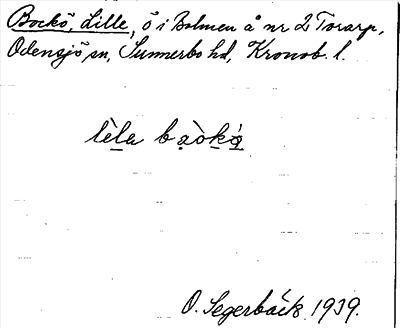 Bockö, Lille, ö i Bolmen å nr 2 Torarp,
Odensjö sn, Sunnerbo hd, Kronob. l.
lèla ba̤òkö́
O. Segerbäck 1939.